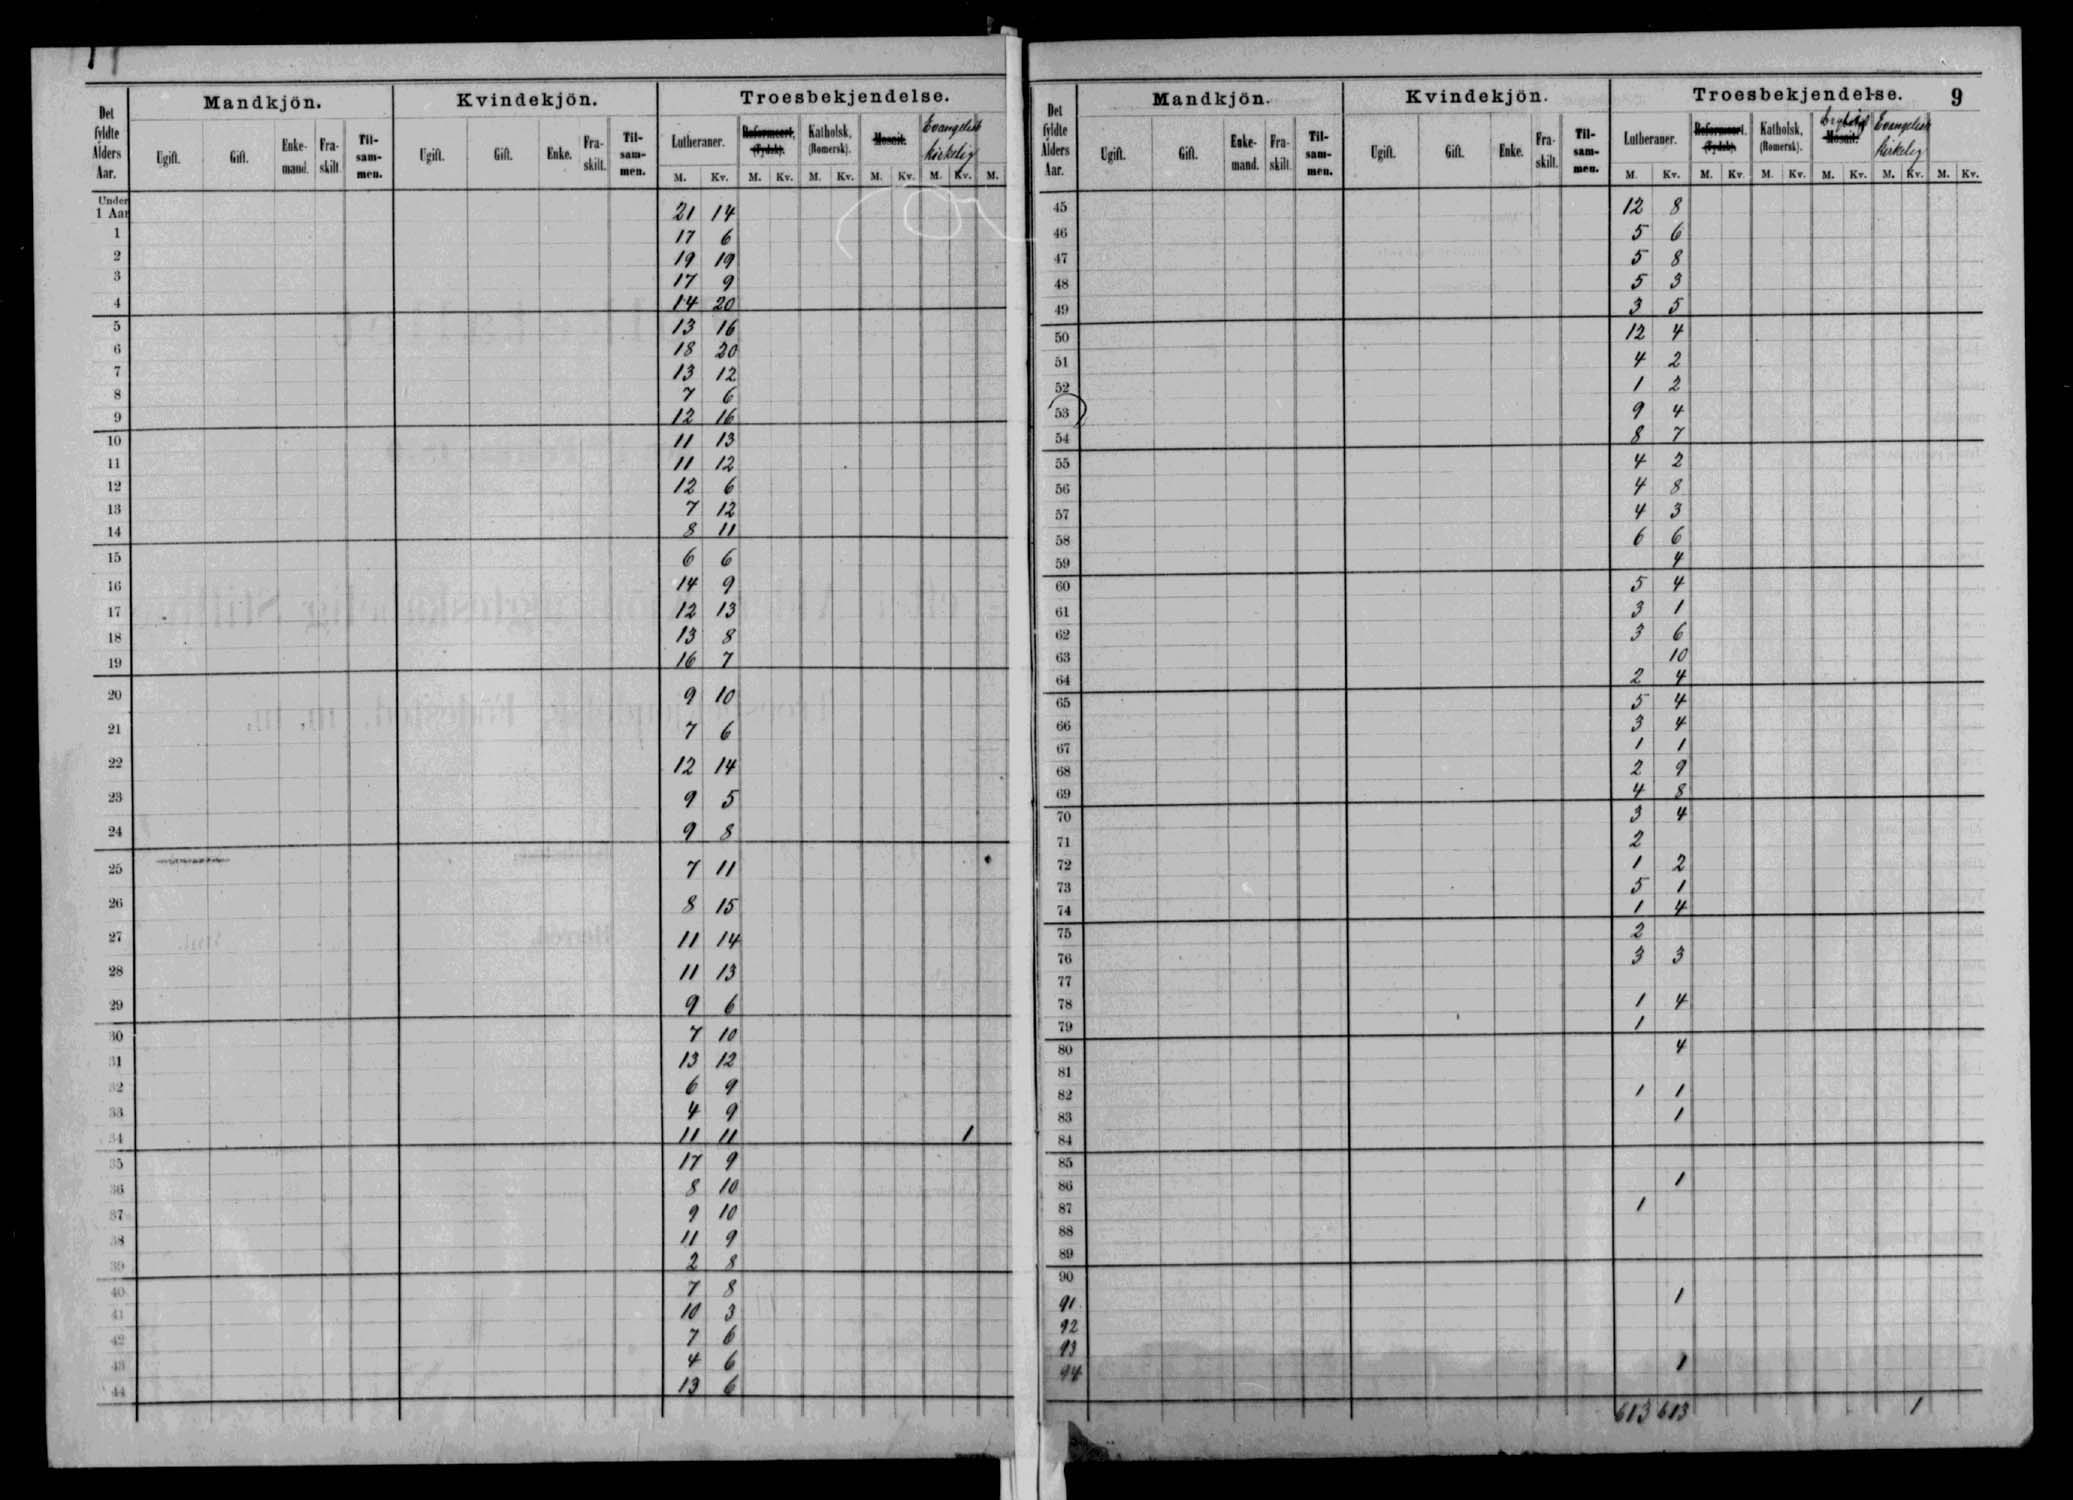 Mandkjön. Kvindekjön. Troesbekjendelse.
Det fyldte Alders Aar. Ugift. Gift. Enke-mand. Fra-skilt. Til-sam-men. Ugift. Gift. Enke. Fra-skilt. Til-sam-men. Lutheraner. Reformeert, (Tydsk). Katholsk, (Romersk). Mosait. Evangelisk kirkelig
M. Kv. M. Kv. M. Kv. M. Kv. M. Kv. M.
Under 1 Aar 21 14
1 17 6
2 19 19
3 17 9
4 14 20
5 13 16
6 18 20
7 13 12
8 7 6
9 12 16
10 11 13
11 11 12
12 12 6
13 7 12
14 8 11
15 6 6
16 14 9
17 12 13
18 13 8
19 16 7
20 9 10
21 7 6
22 12 14
23 9 5
24 9 8
25 7 11
26 8 15
27 11 14
28 11 13
29 9 6
30 7 10
31 13 12
32 6 9
33 4 9
34 11 11 1
35 17 9
36 8 10
37 9 10
38 11 9
39 2 8
40 7 8
41 10 3
42 7 6
43 4 6
44 13 6
Mandkjön. Kvindekjön. Troesbekjendelse. 9
Det fyldte Alders Aar. Ugift. Gift. Enke-mand. Fra-skilt. Til-sam-men. Ugift. Gift. Enke. Fra-skilt. Til-sam-men. Lutheraner. Reformeert. (Tydsk). Katholsk, (Romersk). Mosait. Evangelisk kirkelig
M. Kv. M. Kv. M. Kv. M. Kv. M. Kv. M. Kv.
45 12 8
46 5 6
47 5 8
48 5 3
49 3 5
50 12 4
51 4 2
52 1 2
53 9 4
54 8 7
55 4 2
56 4 8
57 4 3
58 6 6
59 4
60 5 4
61 3 1
62 3 6
63 10
64 2 4
65 5 4
66 3 4
67 1 1
68 2 9
69 4 8
70 3 4
71 2
72 1 2
73 5 1
74 1 4
75 2
76 3 3
77
78 1 4
79 1
80 4
81
82 1 1
83 1
84
85
86 1
87 1
88
89
90
91 1
92
93
94 1
613 613 1